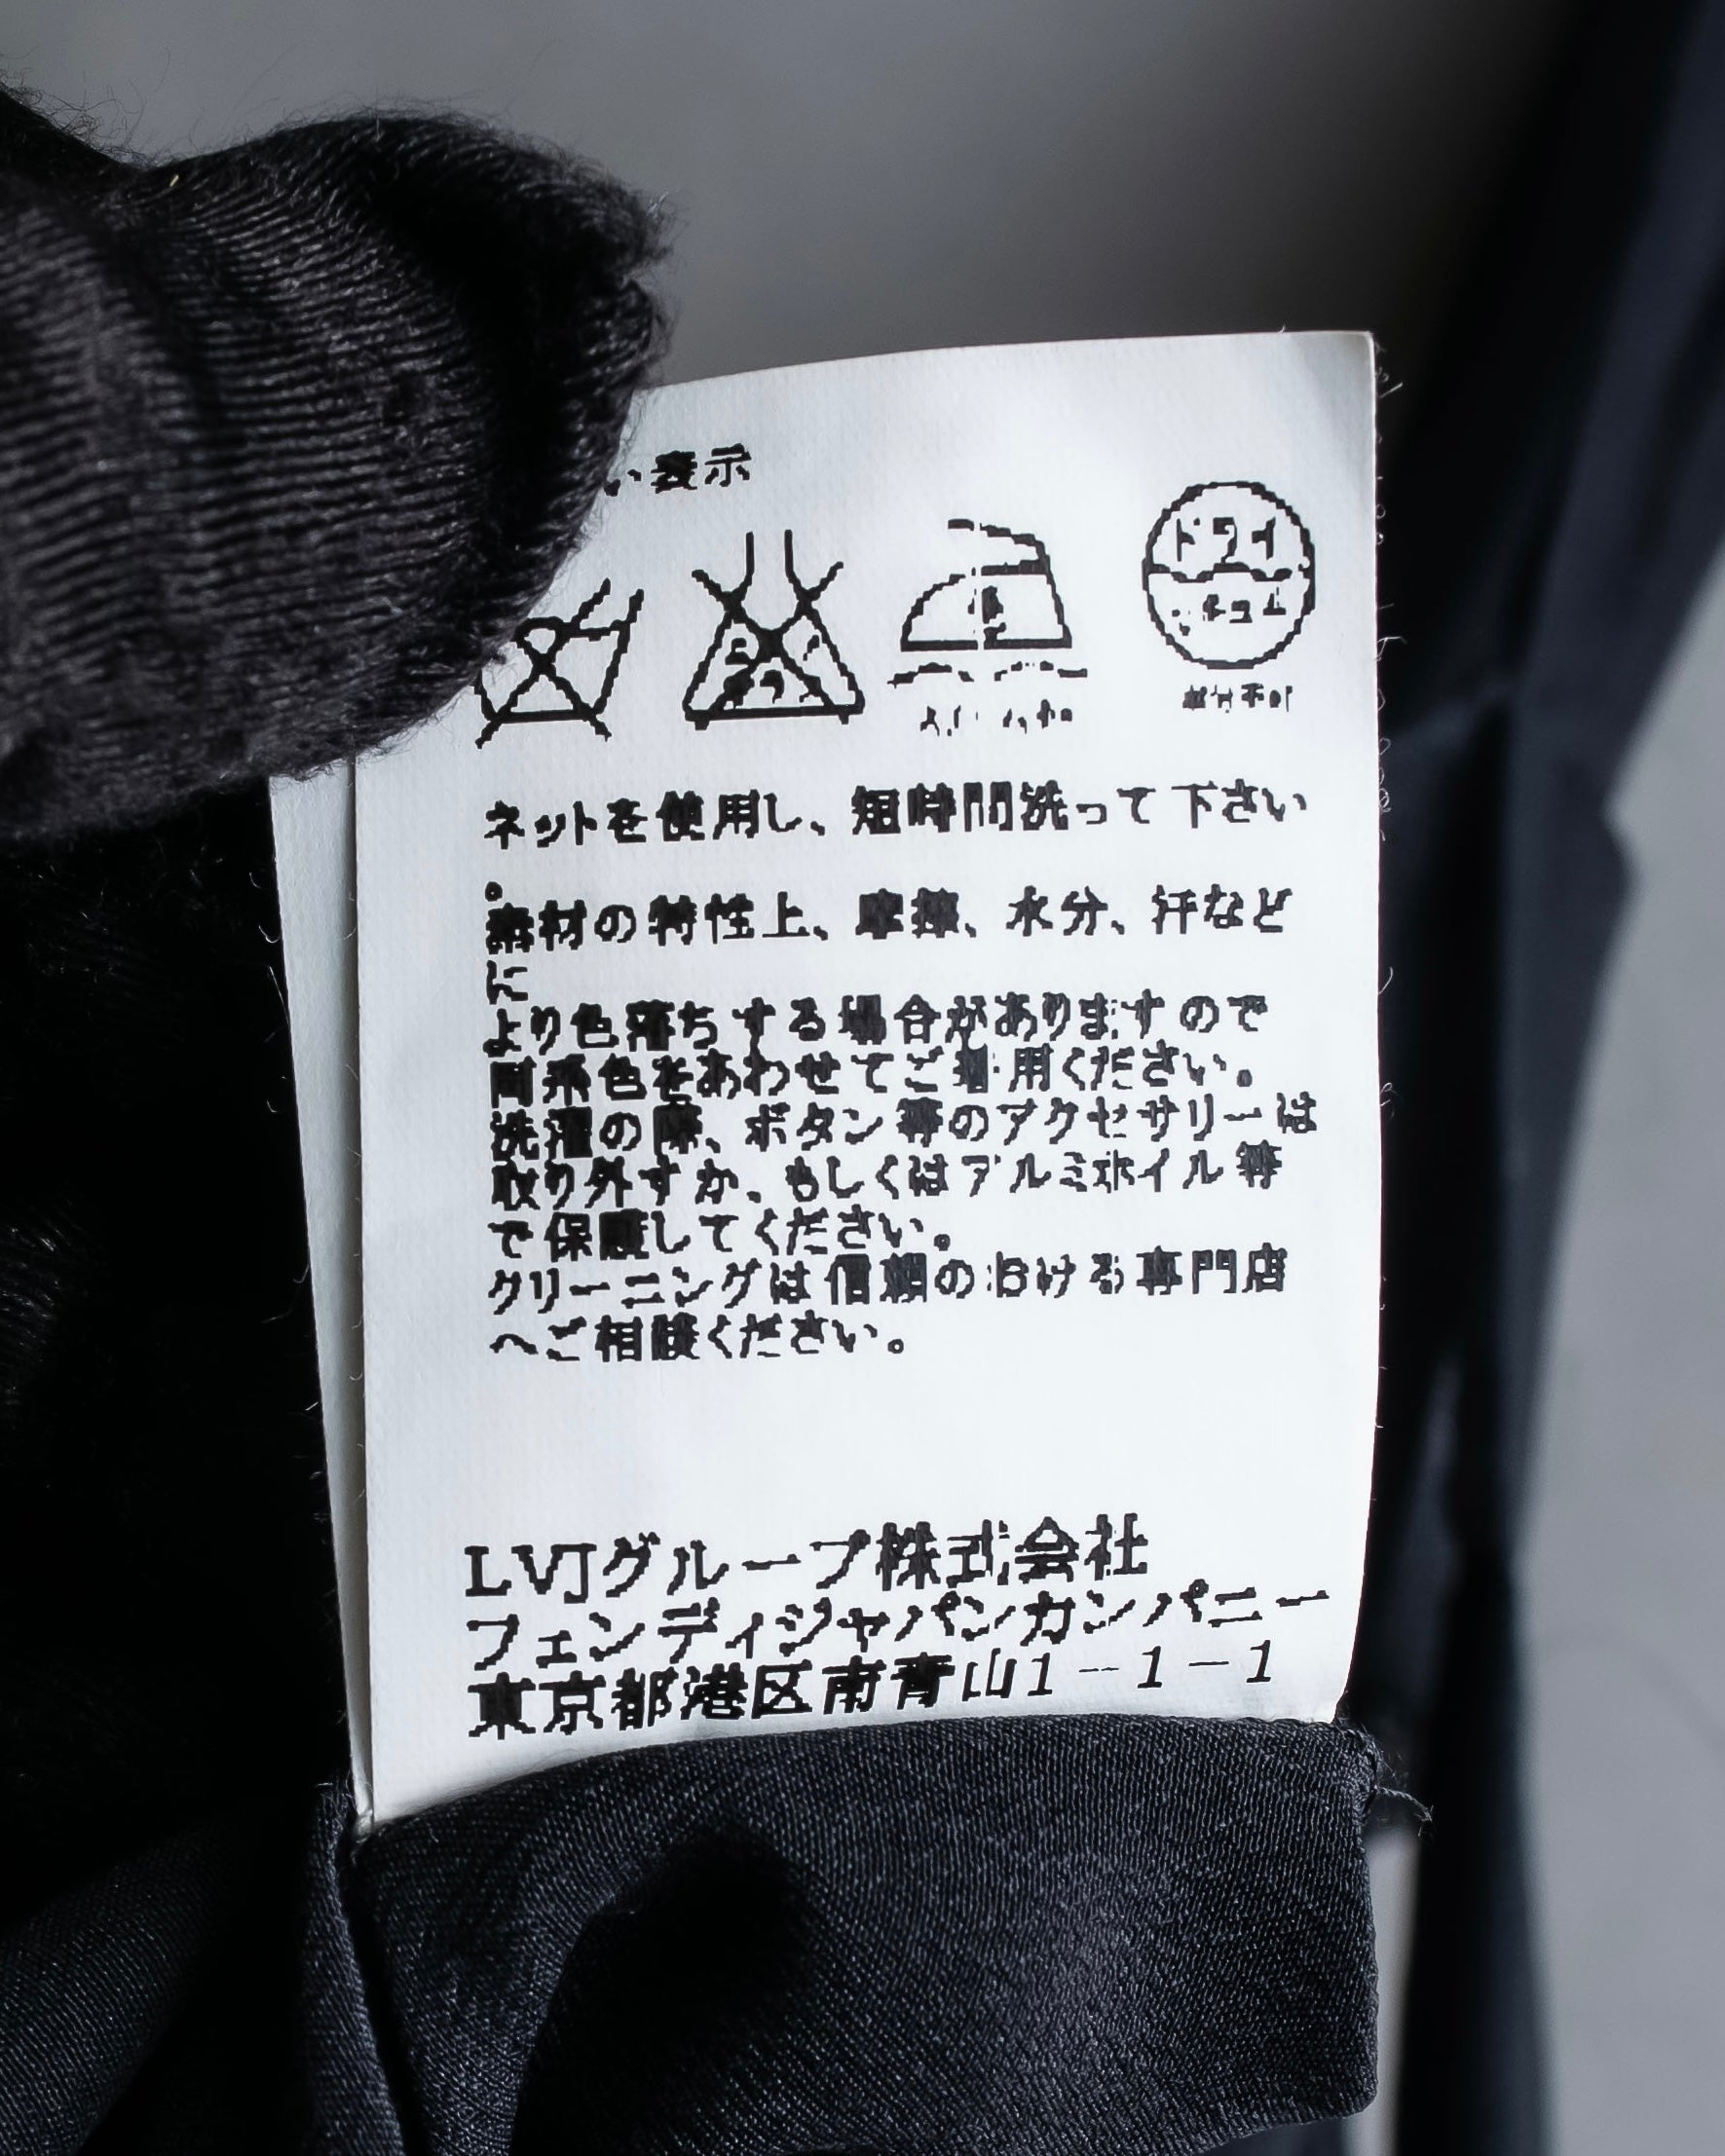 い表示
ドライ
ネットを使用し、短時間洗って下さい
。
素材の特性上、摩擦、水分、汗など
に
より色落ちする場合がありますので
同系色をあわせてご着用ください。
洗濯の際、ボタン等のアクセサリーは
取り外すか、もしくはアルミホイル等
で保護してください。
クリーニングは信頼のおける専門店
へご相談ください。
LVJグループ株式会社
フェンディジャパンカンパニー
東京都港区南青山1-1-1